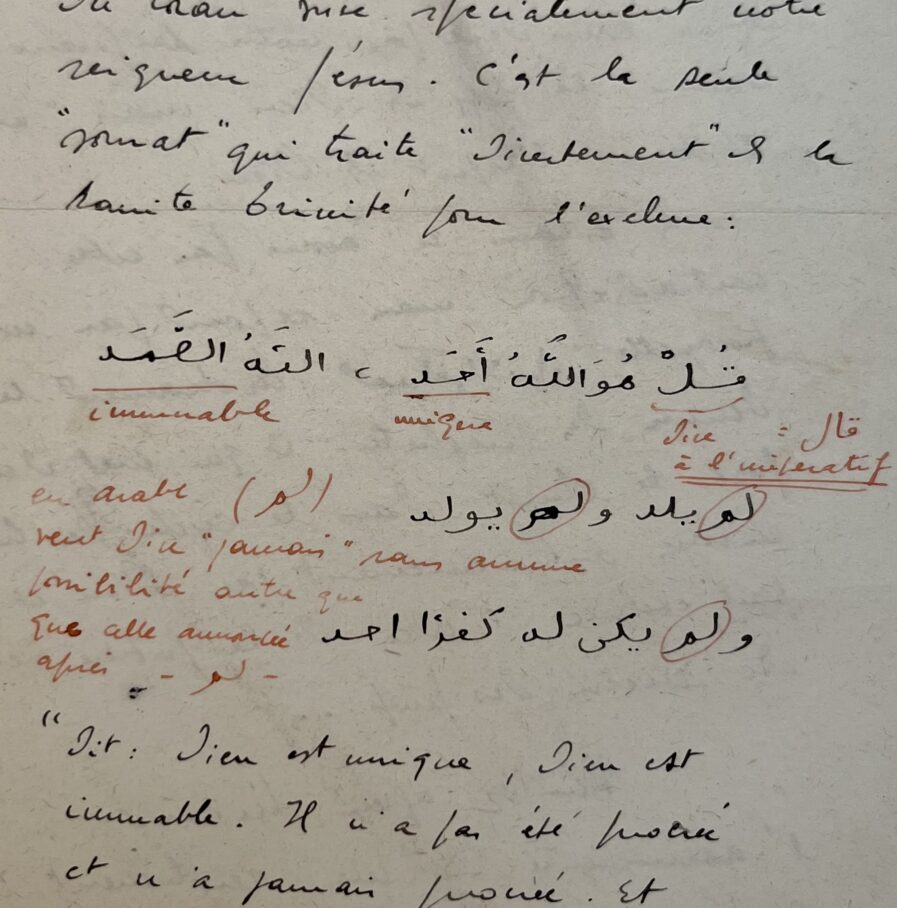 Du coran vise spécialement notre
seigneur Jésus. C'est la seule
"sourat" qui traite "Directement" de la
sainte trinité pour l'exclure:
قُلْ هُوَ اللَّهُ أَحَد ، اللَّهُ الصَّمَد
immuable
unique
Dire = قال
à l'impératif
لم يلد ولم يولد
en arabe (لم)
veut Dire "jamais" sans aucune
possibilité autre que
que celle annoncée
ولم يكن له كفرًا احد
après - لم -
"Dit: Dieu est unique, Dieu est
immuable. Il n'a pas été procréé
et n'a jamais procréé. Et